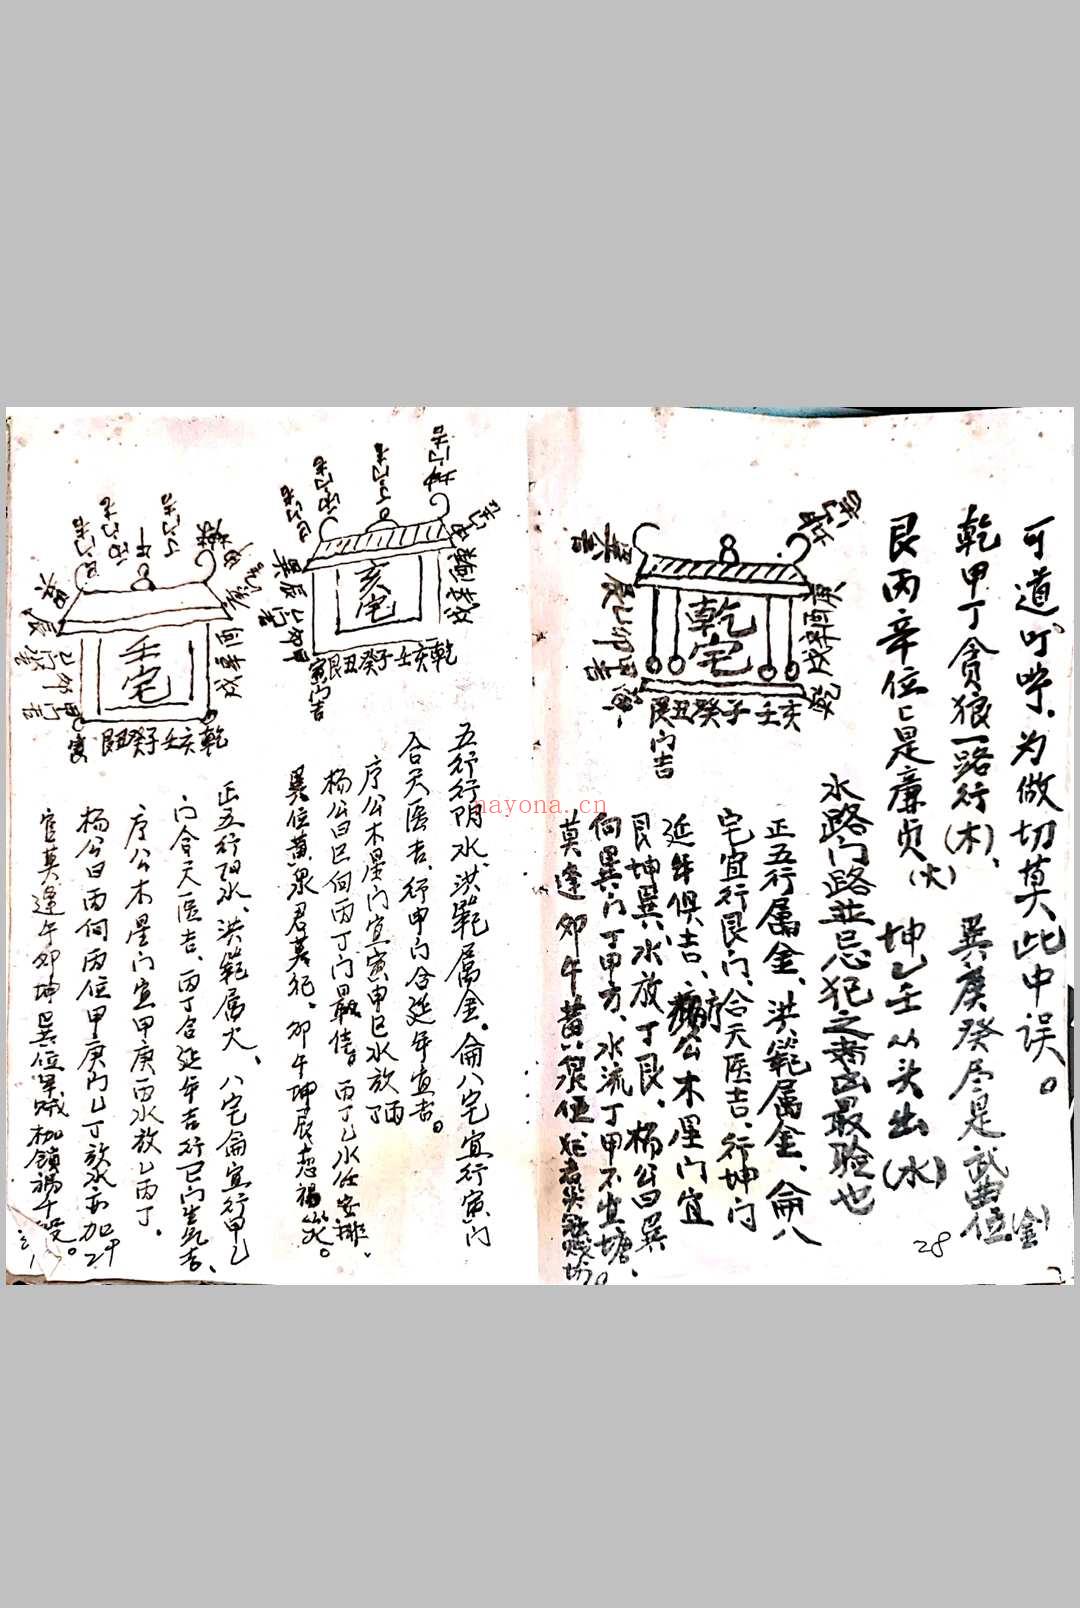 可道叮咛，为做切莫此中误。
乾甲丁贪狼一路行(木)、巽庚癸尽是武曲位(金)
艮丙辛位辶是廉贞(火) 坤乙壬从头出(水)
水路门路並忌犯之者凶最险也
乾宅
艮丑癸子壬亥
艮门吉
正五行属金、洪範属金、侖八
宅宜行艮门、合天医吉、行坤门
延年俱吉、序公木星门宜
艮坤巽、水放丁艮、杨公曰巽
向巽门丁甲方、水流丁甲不宜塘、
莫逢卯午黄泉位
28
亥宅
艮丑癸子壬亥乾
寅门吉
五行行阴水、洪範属金。侖八宅宜行寅门
合天医吉、行甲门合延年宜吉。
序公木星门宜寅申巳水放丙
杨公曰巳向丙丁门最佳。丙丁乙水任安排、
巽位黄泉君莫犯。卯午坤辰惹禍災。
壬宅
艮丑癸子壬亥乾
正五行阳水、洪範属火、八宅侖宜行甲乙
门合天医吉、丙丁合延年吉行巳门生气吉、
序公木星门宜甲庚丙水放乙丙丁。
杨公曰丙向丙位甲庚门乙丁放水亦加
官莫逢午卯坤巽位军贼枷鎖禍
29
nayona.cn